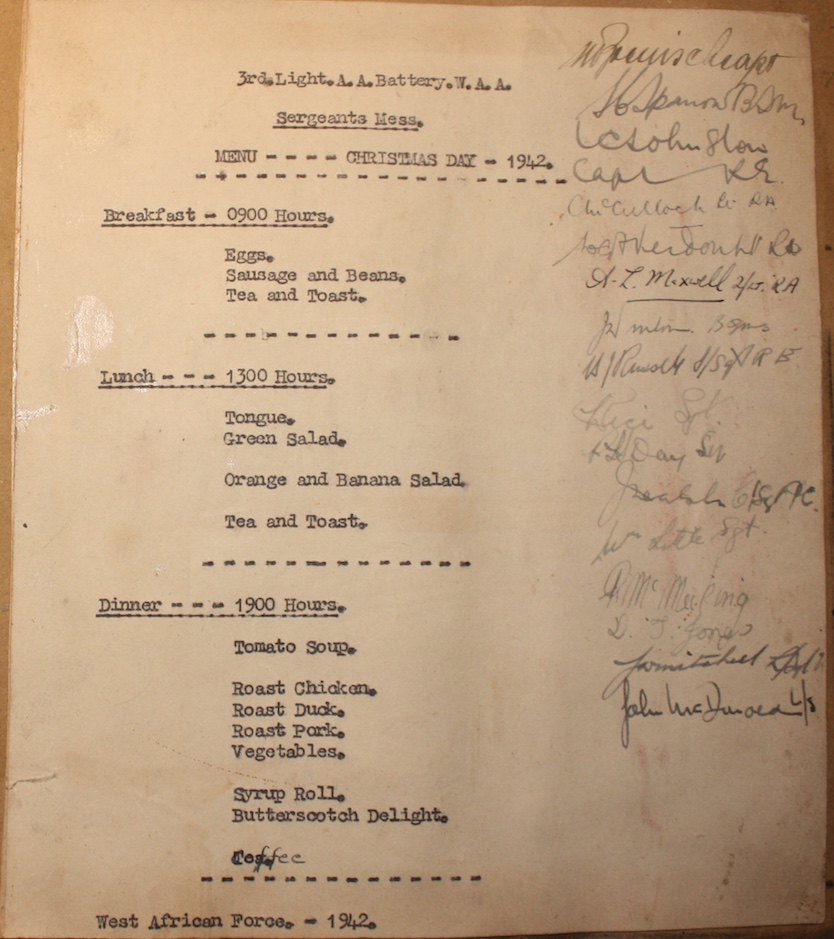 3rd.Light.A.A.Battery.W.A.A.
Sergeants Mess.
MENU - - - - CHRISTMAS DAY - 1942.
Breakfast - 0900 Hours.
Eggs.
Sausage and Beans.
Tea and Toast.
Lunch - - - 1300 Hours.
Tongue.
Green Salad.
Orange and Banana Salad.
Tea and Toast.
Dinner - - - 1900 Hours.
Tomato Soup.
Roast Chicken.
Roast Duck.
Roast Pork.
Vegetables.
Syrup Roll.
Butterscotch Delight.
Coffee
West African Force. - 1942.
Capt
Capt
McCulloch Lt RA
A. L. Maxwell 2/Lt. RA
Sgt.
Day
Wm Little Sgt.
D. J. Jones
John